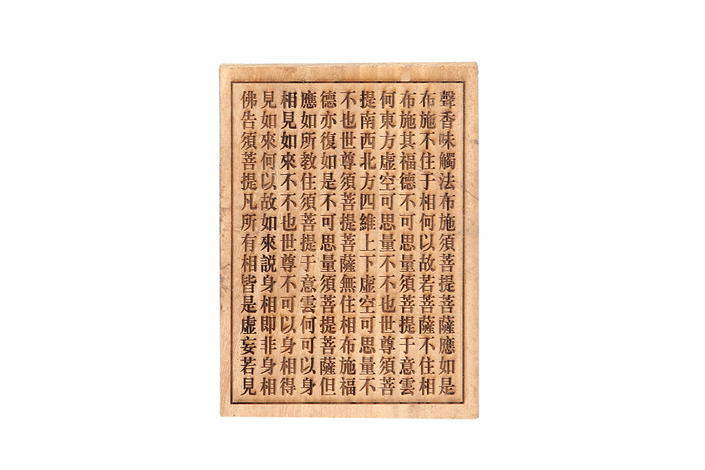 聲香味觸法布施須菩提菩薩應如是
布施不住于相何以故若菩薩不住相
布施其福德不可思量須菩提于意雲
何東方虛空可思量不不也世尊須菩
提南西北方四維上下虛空可思量不
不也世尊須菩提菩薩無住相布施福
德亦復如是不可思量須菩提菩薩但
應如所教住須菩提于意雲何可以身
相見如來不不也世尊不可以身相得
見如來何以故如來説身相即非身相
佛告須菩提凡所有相皆是虛妄若見